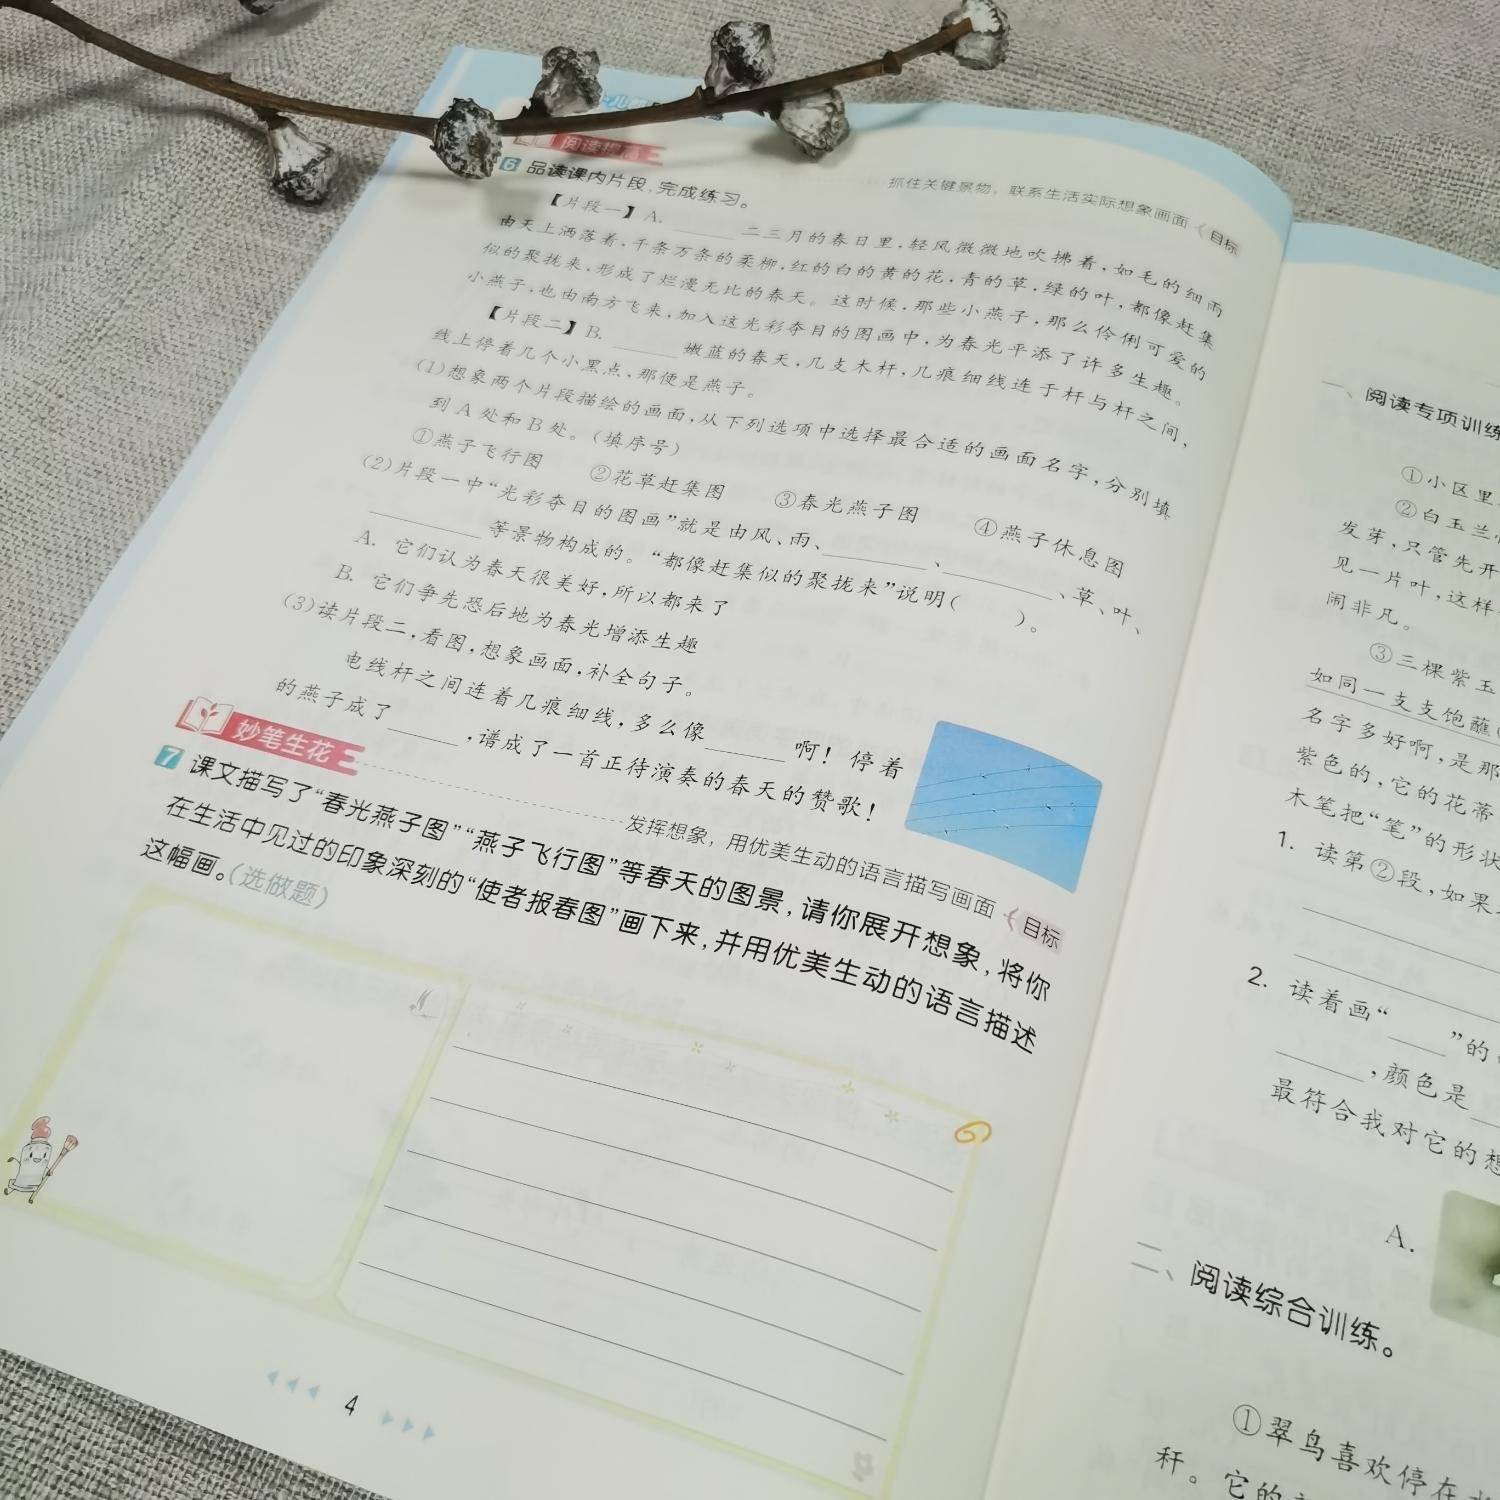 阅读提高
抓住关键景物，联系生活实际想象画面 目标
6 品读课内片段，完成练习。
【片段一】A. ______ 二三月的春日里，轻风微微地吹拂着，如毛的细雨
由天上洒落着，千条万条的柔柳，红的白的黄的花，青的草，绿的叶，都像赶集
似的聚拢来，形成了烂漫无比的春天。这时候，那些小燕子，那么伶俐可爱的
小燕子，也由南方飞来，加入这光彩夺目的图画中，为春光平添了许多生趣。
【片段二】B. ______ 嫩蓝的春天，几支木杆，几痕细线连于杆与杆之间，
线上停着几个小黑点，那便是燕子。
(1)想象两个片段描绘的画面，从下列选项中选择最合适的画面名字，分别填
到A处和B处。(填序号)
①燕子飞行图 ②花草赶集图 ③春光燕子图 ④燕子休息图
(2)片段一中“光彩夺目的图画”就是由风、雨、______、______、草、叶、
______等景物构成的。“都像赶集似的聚拢来”说明( )。
A. 它们认为春天很美好，所以都来了
B. 它们争先恐后地为春光增添生趣
(3)读片段二，看图，想象画面，补全句子。
电线杆之间连着几痕细线，多么像______啊！停着
的燕子成了______，谱成了一首正待演奏的春天的赞歌！
妙笔生花
发挥想象，用优美生动的语言描写画面 目标
7 课文描写了“春光燕子图”“燕子飞行图”等春天的图景，请你展开想象，将你
在生活中见过的印象深刻的“使者报春图”画下来，并用优美生动的语言描述
这幅画。(选做题)
4
一、阅读专项训练
①小区里
②白玉兰
发芽，只管先开
见一片叶，这样
闹非凡。
③三棵紫玉
如同一支支饱蘸
名字多好啊，是那
紫色的，它的花蒂
木笔把“笔”的形状
1. 读第②段，如果
2. 读着画“____”的
______，颜色是
最符合我对它的想
A.
二、阅读综合训练。
①翠鸟喜欢停在水
秆。它的